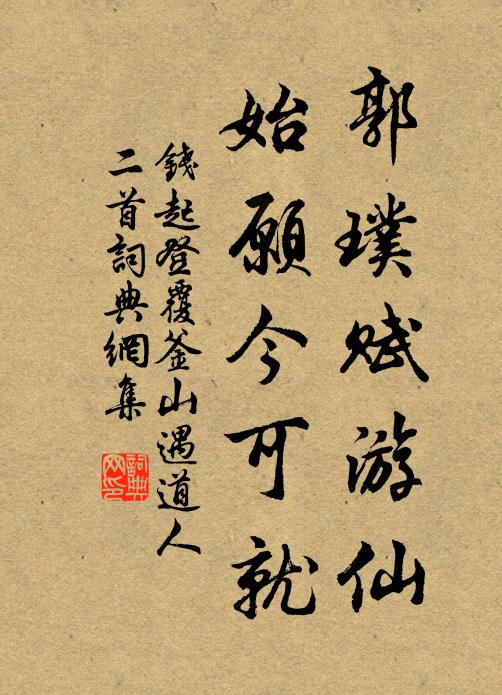 郭璞赋游仙
始願今可就
錢起登覆釜山遇道人
二首詞典網集
詞典网印